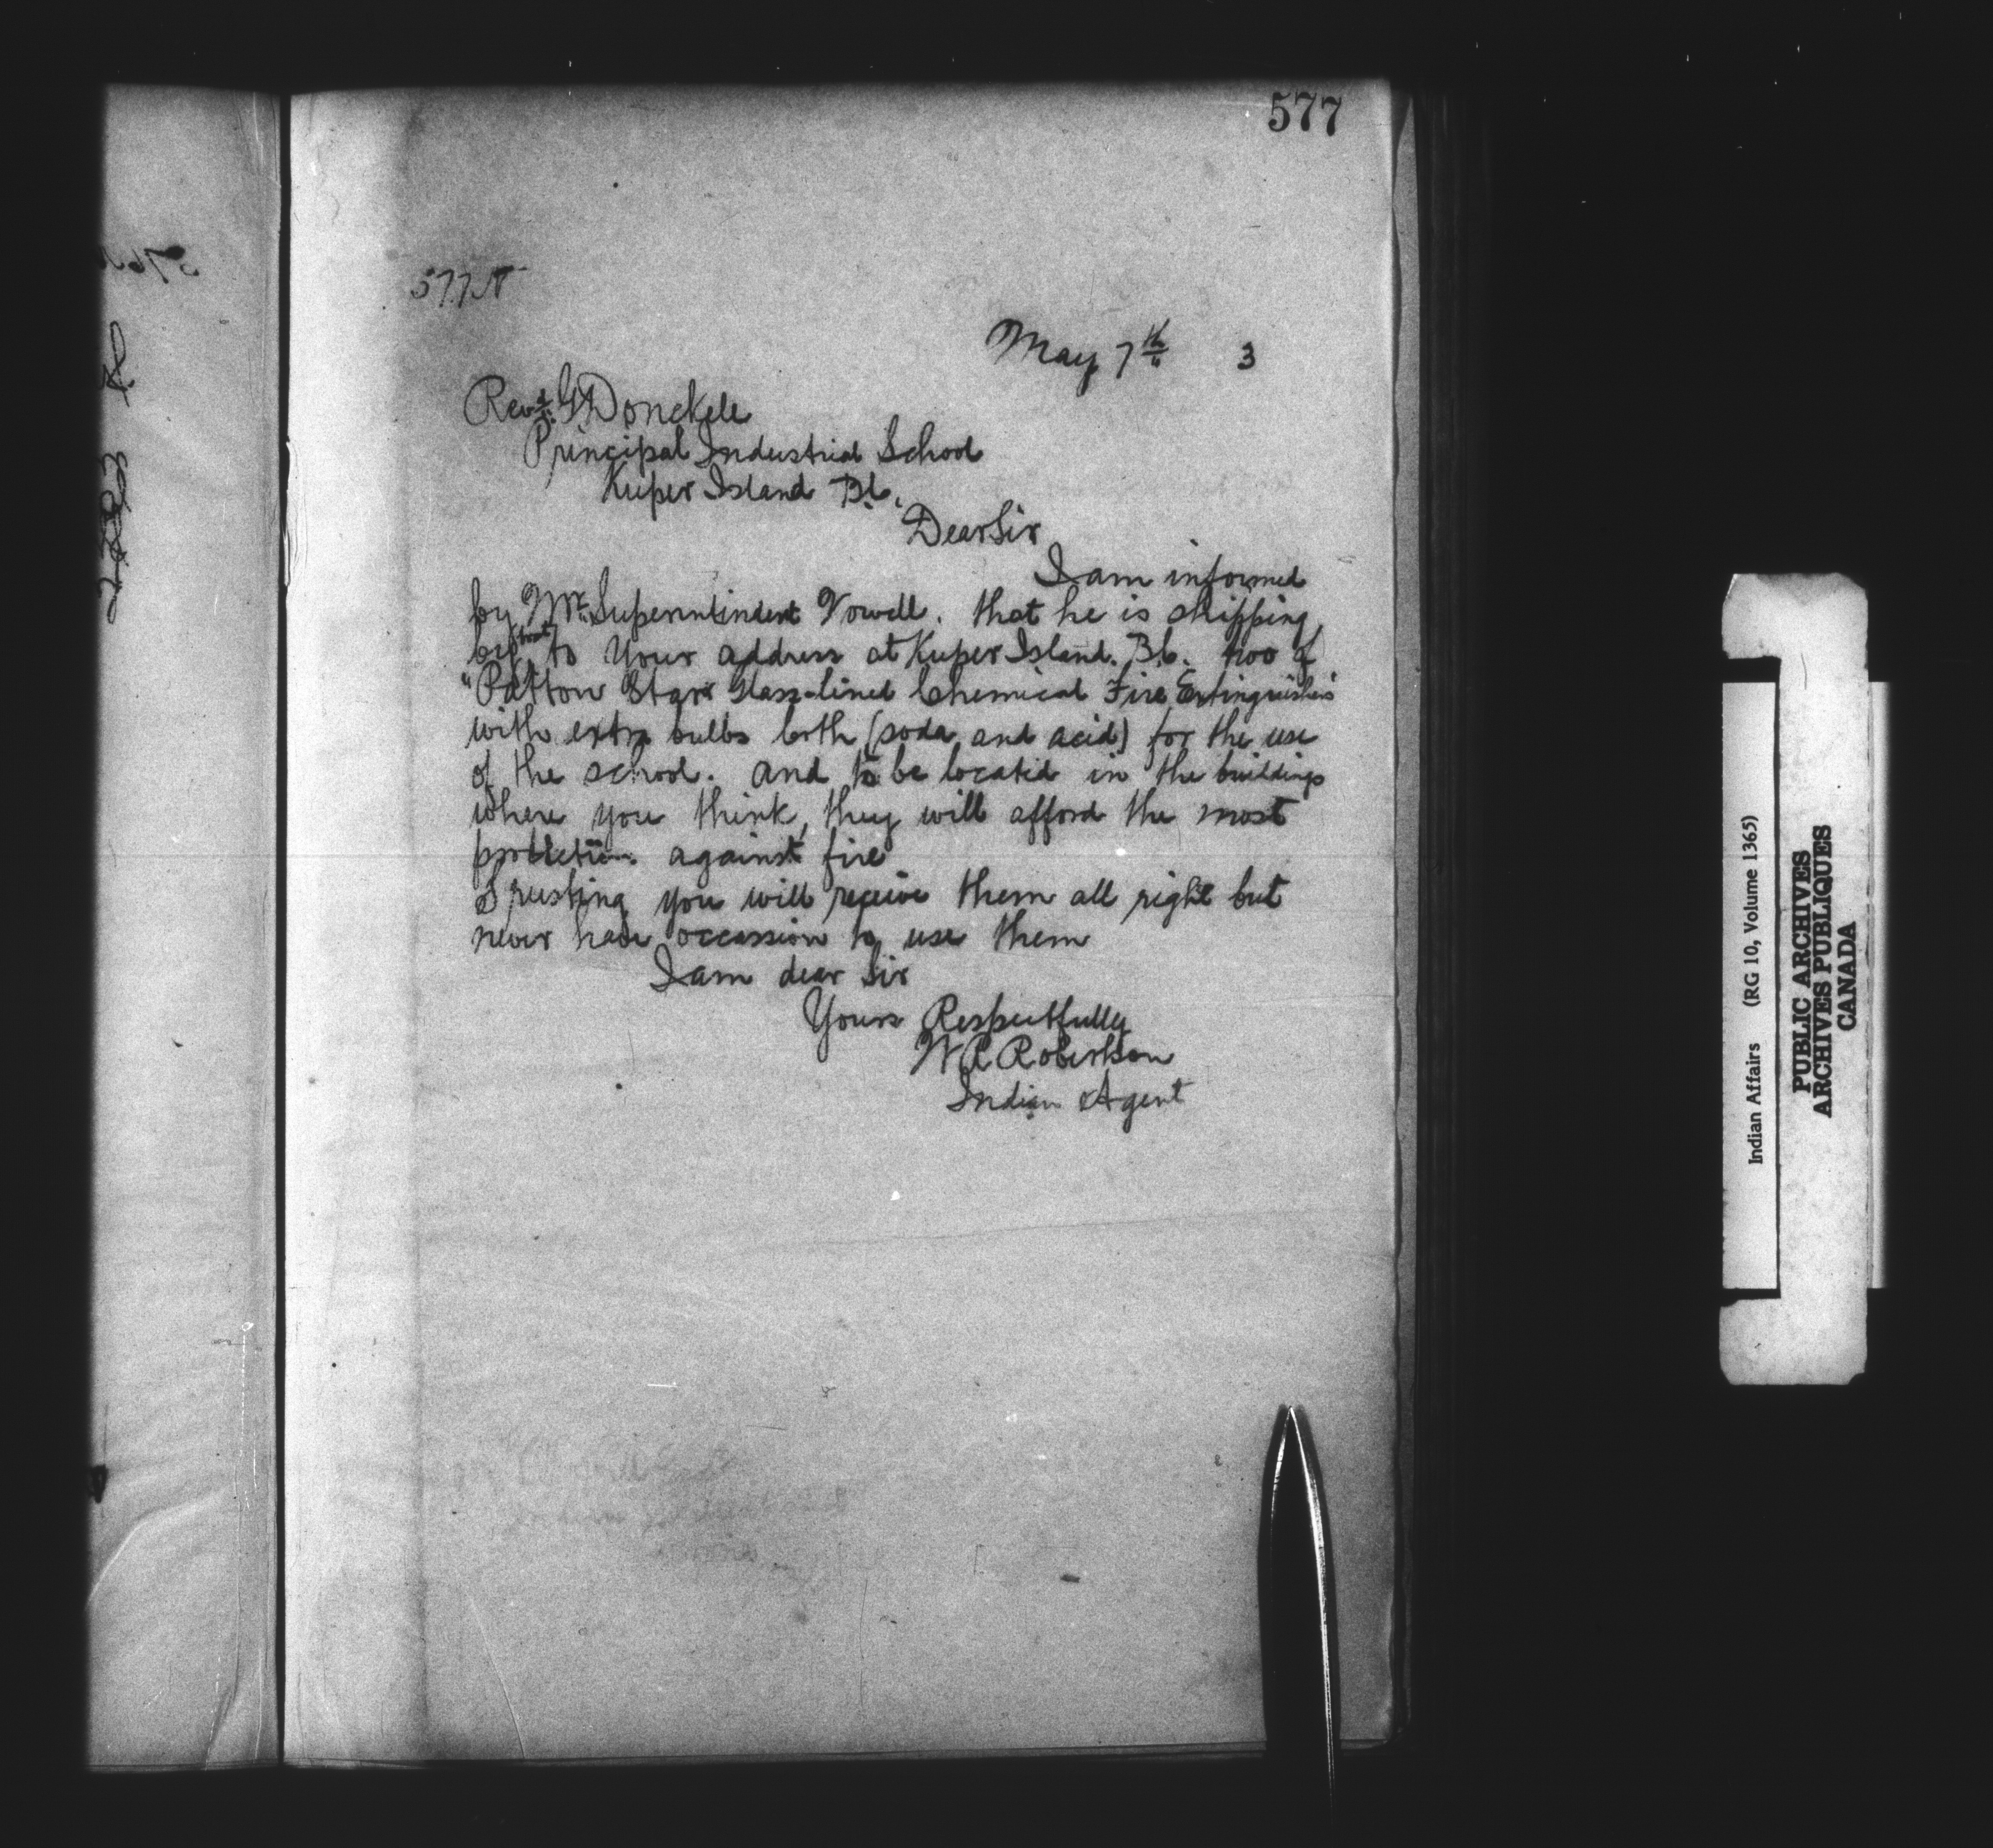 577
577
May 7th 3
Revd. G Donckele
Principal Industrial School
Kuper Island B.C.
Dear Sir
I am informed
by Mr. Superintindent Vowell. that he is shipping
by boat to your address at Kuper Island. B.C. two of
"Patton Star Glass-lined Chemical Fire Extinguishers"
with extra bulbs both (soda and acid) for the use
of the school. and to be located in the buildings
where you think they will afford the most
protection against fire
Trusting you will receive them all right but
never have occassion to use them
I am dear Sir
Yours Respectfully
W R Robertson
Indian Agent
Indian Affairs (RG 10, Volume 1365)
PUBLIC ARCHIVES
ARCHIVES PUBLIQUES
CANADA